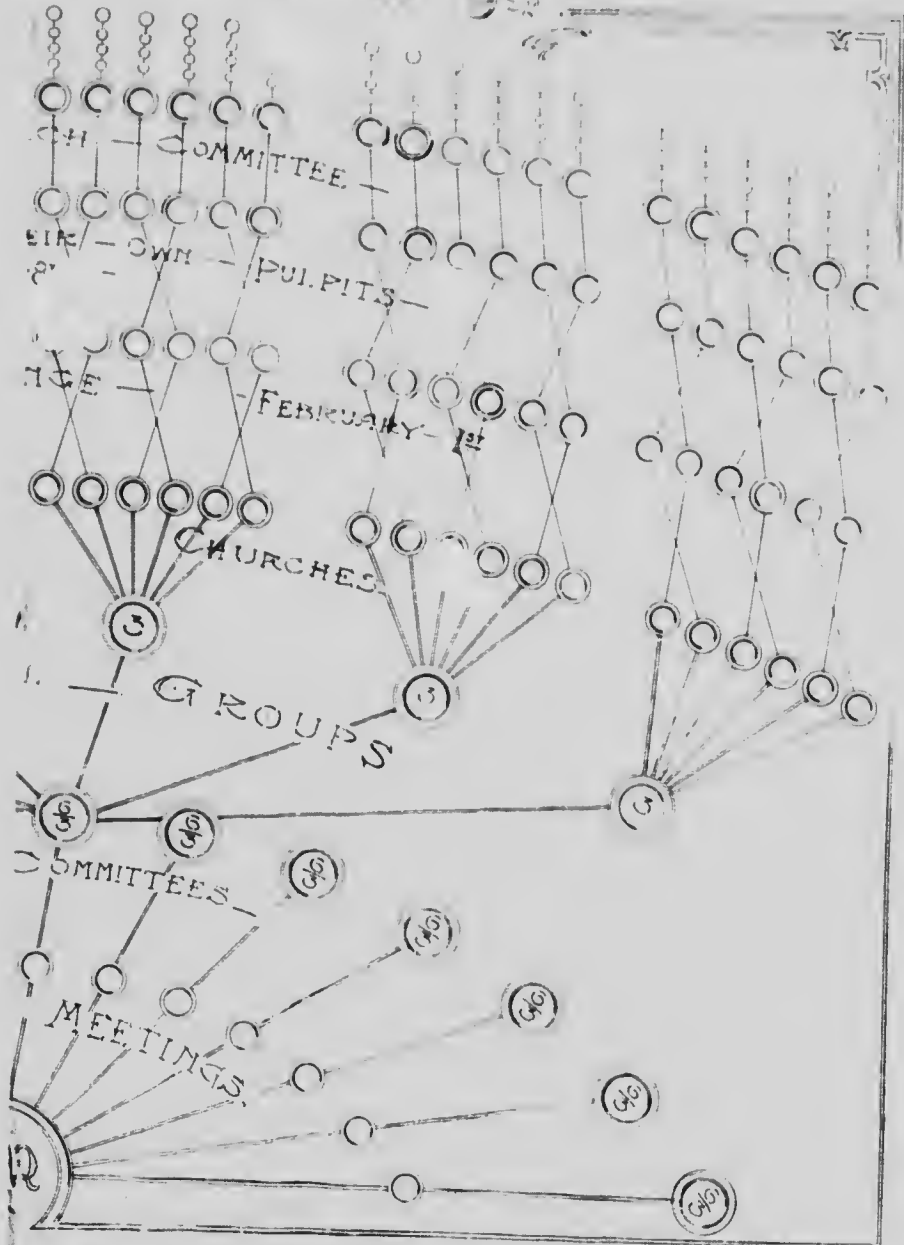 CH — COMMITTEE —
EIR — OWN — PULPITS —
NGE — — FEBRUARY — 1st
CHURCHES
3
3
— GROUPS
3
COMMITTEES —
MEETINGS.